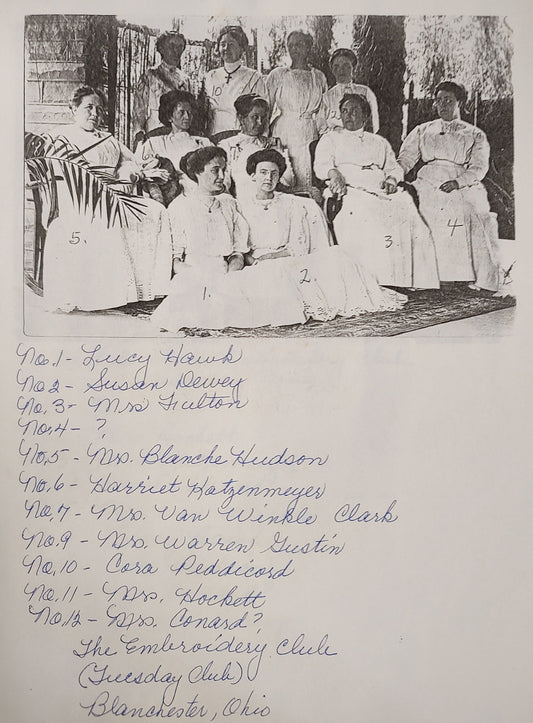 10
12
5.
3
4
1.
2.
No.1 - Lucy Hawk
No 2 - Susan Dewey
No, 3 - Mrs Fulton
No.4 - ?
No,5 - Mrs. Blanche Hudson
No,6 - Harriet Katzenmeyer
No,7 - Mrs. Van Winkle Clark
No,9 - Mrs. Warren Gustin
No,10 - Cora Peddicord
No,11 - Mrs. Hockett
No,12 - Mrs. Conard?
The Embroidery Club
(Tuesday Club)
Blanchester, Ohio